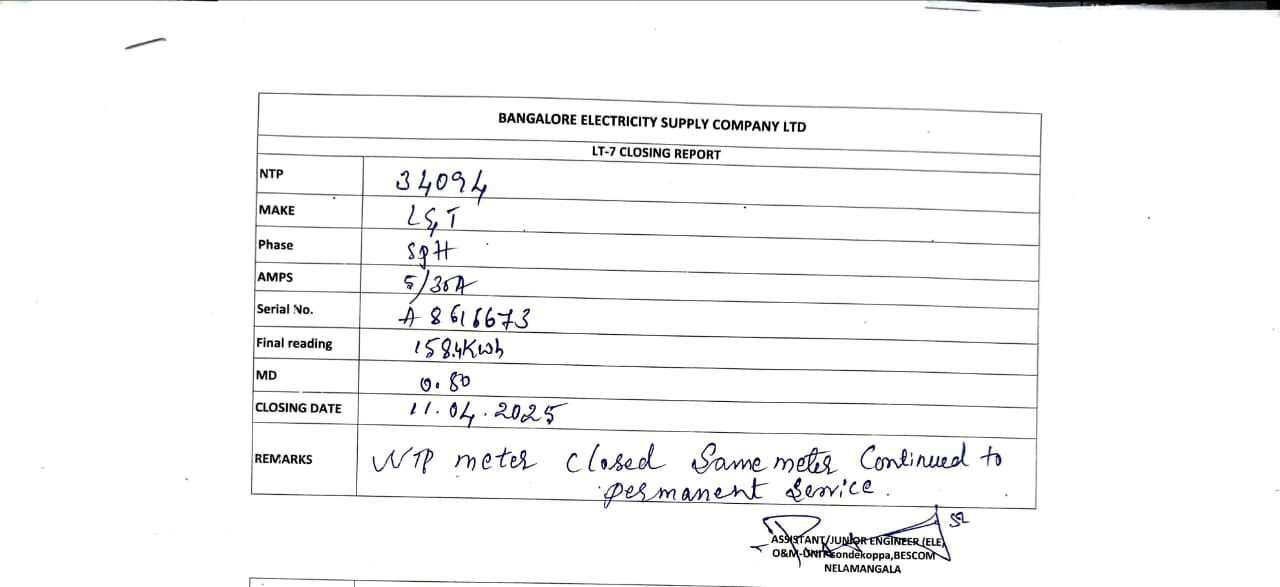 BANGALORE ELECTRICITY SUPPLY COMPANY LTD
LT-7 CLOSING REPORT
NTP 34094
MAKE L&T
Phase SPH
AMPS 5/30A
Serial No. A 8616673
Final reading 158.4Kwh
MD 0.80
CLOSING DATE 11.04.2025
REMARKS NTP meter closed Same meter Continued to
permanent service.
ASSISTANT/JUNIOR ENGINEER (ELE)
O&M-UNIT Sondekoppa,BESCOM
NELAMANGALA